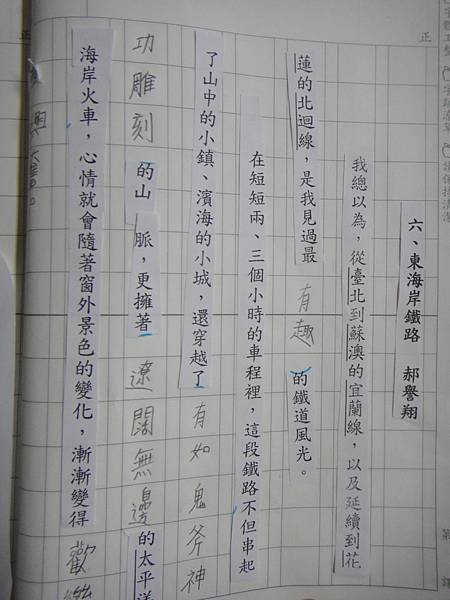 正
六、東海岸鐵路　郝譽翔
我總以為，從臺北到蘇澳的宜蘭線，以及延續到花
蓮的北迴線，是我見過最有趣的鐵道風光。
在短短兩、三個小時的車程裡，這段鐵路不但串起
了山中的小鎮、濱海的小城，還穿越了有如鬼斧神
功雕刻的山脈，更擁著遼闊無邊的太平洋
海岸火車，心情就會隨著窗外景色的變化，漸漸變得歡
正